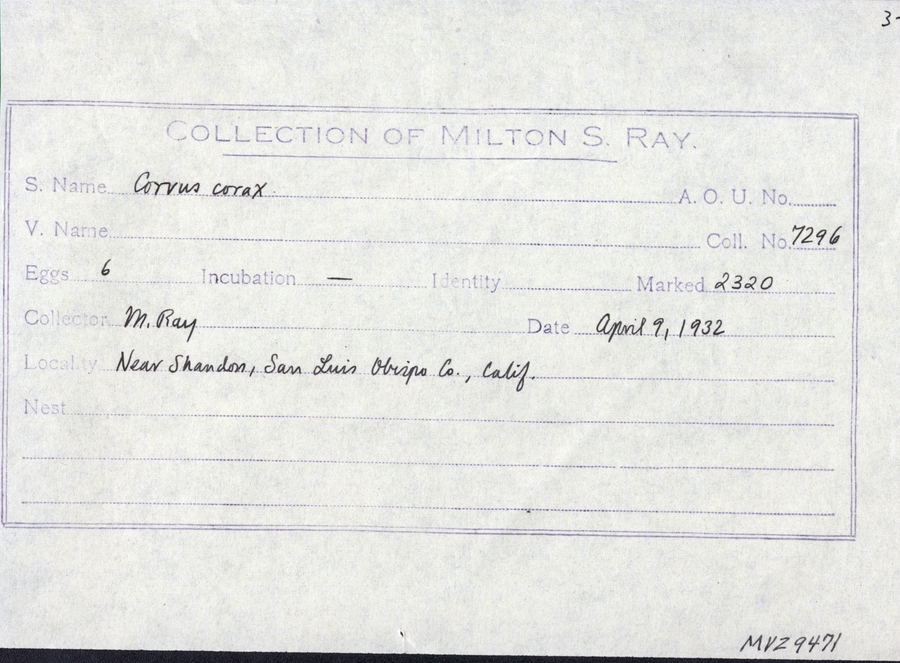 3-
COLLECTION OF MILTON S. RAY.
S. Name Corvus corax A. O. U. No.
V. Name Coll. No. 7296
Eggs 6 Incubation — Identity Marked 2320
Collector M. Ray Date April 9, 1932
Locality Near Shandon, San Luis Obispo Co., Calif.
Nest
MVZ 9471